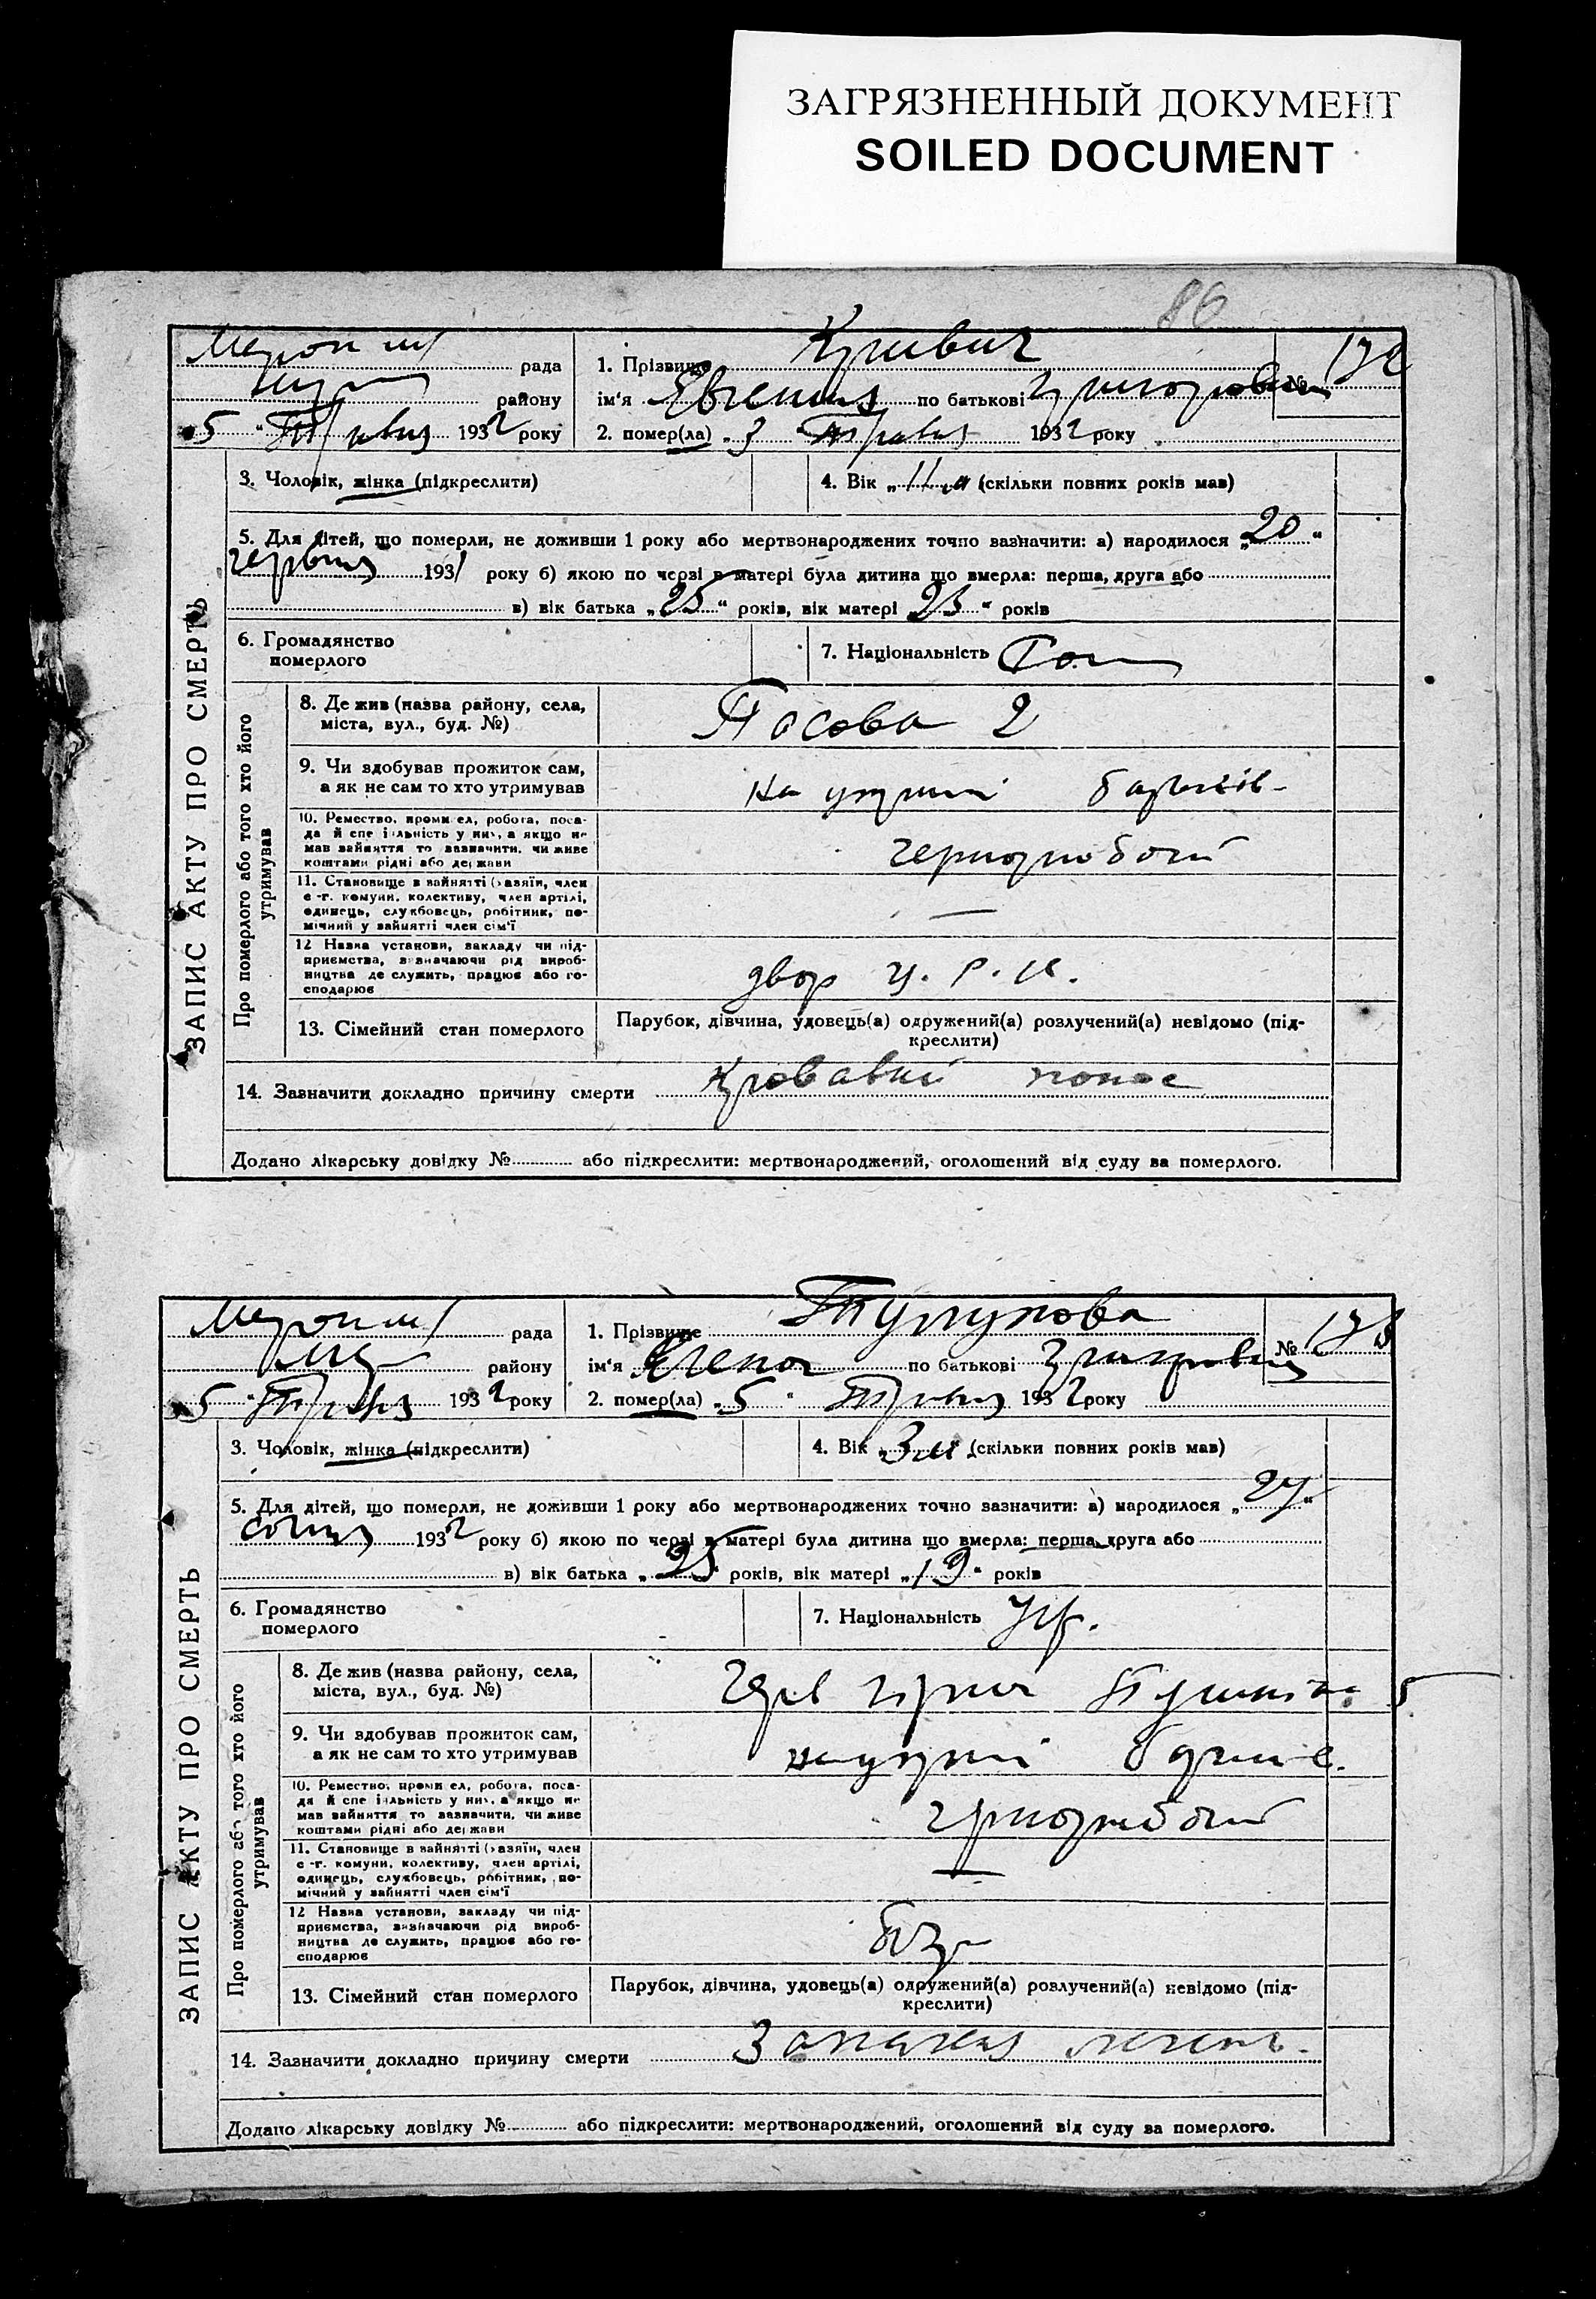 ЗАГРЯЗНЕННЫЙ ДОКУМЕНТ
SOILED DOCUMENT
86
ЗАПИС АКТУ ПРО СМЕРТЬ
рада
району
5 " Травня 1932 року
1. Прізвище Кривич
№ 172
ім'я Евгения по батькові Григоровна
2. помер(ла) „3 " Травня 1932 року
3. Чоловік, жінка (підкреслити)
4. Вік „11 м" (скільки повних років мав)
5. Для дітей, що померли, не доживши 1 року або мертвонароджених точно зазначити: а) народилося „20"
червня 1931 року б) якою по черзі в матері була дитина що вмерла: перша, друга або
в) вік батька „25" років, вік матері „23" років
6. Громадянство
померлого
7. Національність
Про померлого або того хто його
утримував
8. Де жив (назва району, села,
міста, вул., буд. №)
2
9. Чи здобував прожиток сам,
а як не сам то хто утримував
на утрим батьків
10. Ремество, промисел, робота, поса-
да й спеціяльність у них, а якщо не
мав зайняття то зазначити, чи живе
коштами рідні або держави
чорноробочий
11. Становище в зайнятті (хазяїн, член
с.-г. комуни, колективу, член артілі,
одинець, службовець, робітник, по-
мічний у зайнятті член сім'ї
—
12 Назва установи, закладу чи під-
приємства, визначаючи рід вироб-
ництва де служить, працює або го-
сподарює
двор Ц. Р. К.
13. Сімейний стан померлого
Парубок, дівчина, удовець(а) одружений(а) розлучений(а) невідомо (під-
креслити)
14. Зазначити докладно причину смерти Кровавий понос
Додано лікарську довідку № або підкреслити: мертвонароджений, оголошений від суду за померлого.
ЗАПИС АКТУ ПРО СМЕРТЬ
рада
району
5 " Травня 1932 року
1. Прізвище Тулупова
№ 173
ім'я Елена по батькові Григоровна
2. помер(ла) „5 " Травня 1932 року
3. Чоловік, жінка (підкреслити)
4. Вік „3 м" (скільки повних років мав)
5. Для дітей, що померли, не доживши 1 року або мертвонароджених точно зазначити: а) народилося „24"
січня 1932 року б) якою по черзі в матері була дитина що вмерла: перша, друга або
в) вік батька „25" років, вік матері „19" років
6. Громадянство
померлого
7. Національність Укр.
Про померлого або того хто його
утримував
8. Де жив (назва району, села,
міста, вул., буд. №)
5
9. Чи здобував прожиток сам,
а як не сам то хто утримував
на утрим батьків.
10. Ремество, промисел, робота, поса-
да й спеціяльність у них, а якщо не
мав зайняття то зазначити, чи живе
коштами рідні або держави
чорноробочий
11. Становище в зайнятті (хазяїн, член
с.-г. комуни, колективу, член артілі,
одинець, службовець, робітник, по-
мічний у зайнятті член сім'ї
—
12 Назва установи, закладу чи під-
приємства, визначаючи рід вироб-
ництва де служить, працює або го-
сподарює
13. Сімейний стан померлого
Парубок, дівчина, удовець(а) одружений(а) розлучений(а) невідомо (під-
креслити)
14. Зазначити докладно причину смерти Запалення легень.
Додано лікарську довідку № або підкреслити: мертвонароджений, оголошений від суду за померлого.